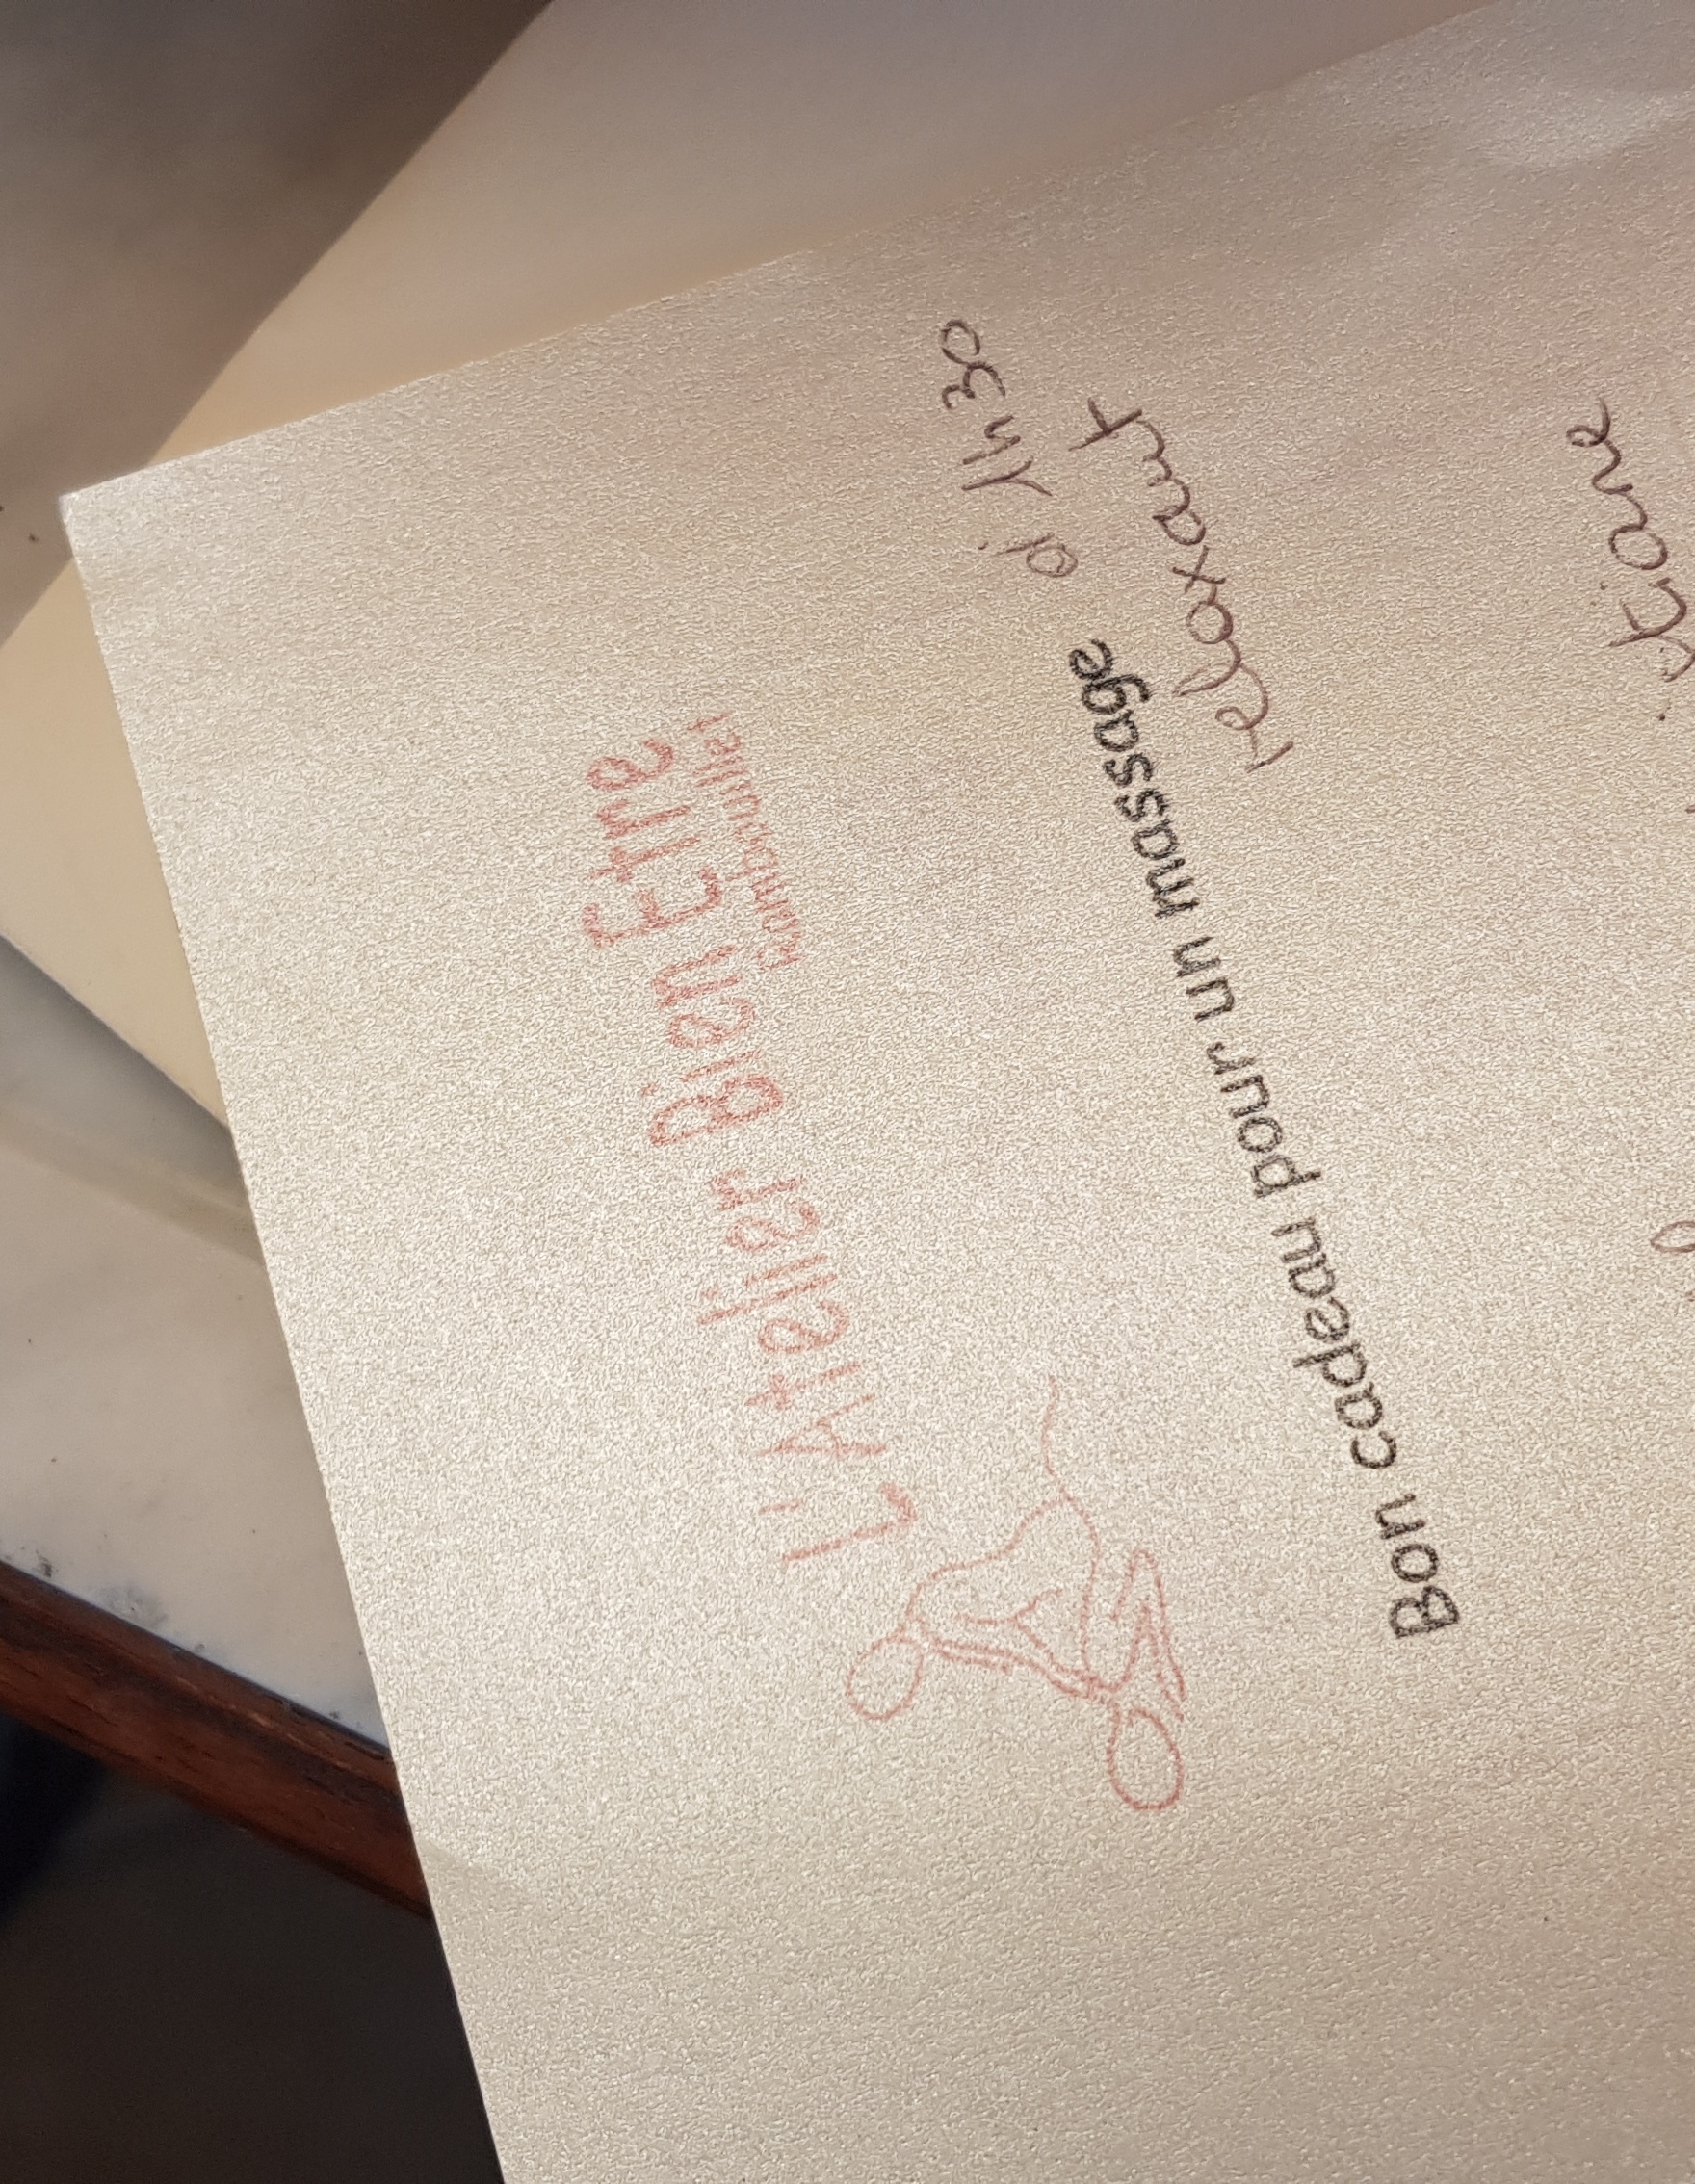 L'Atelier Bien Etre
Rambouillet
Bon cadeau pour un massage d'1h30
relaxant